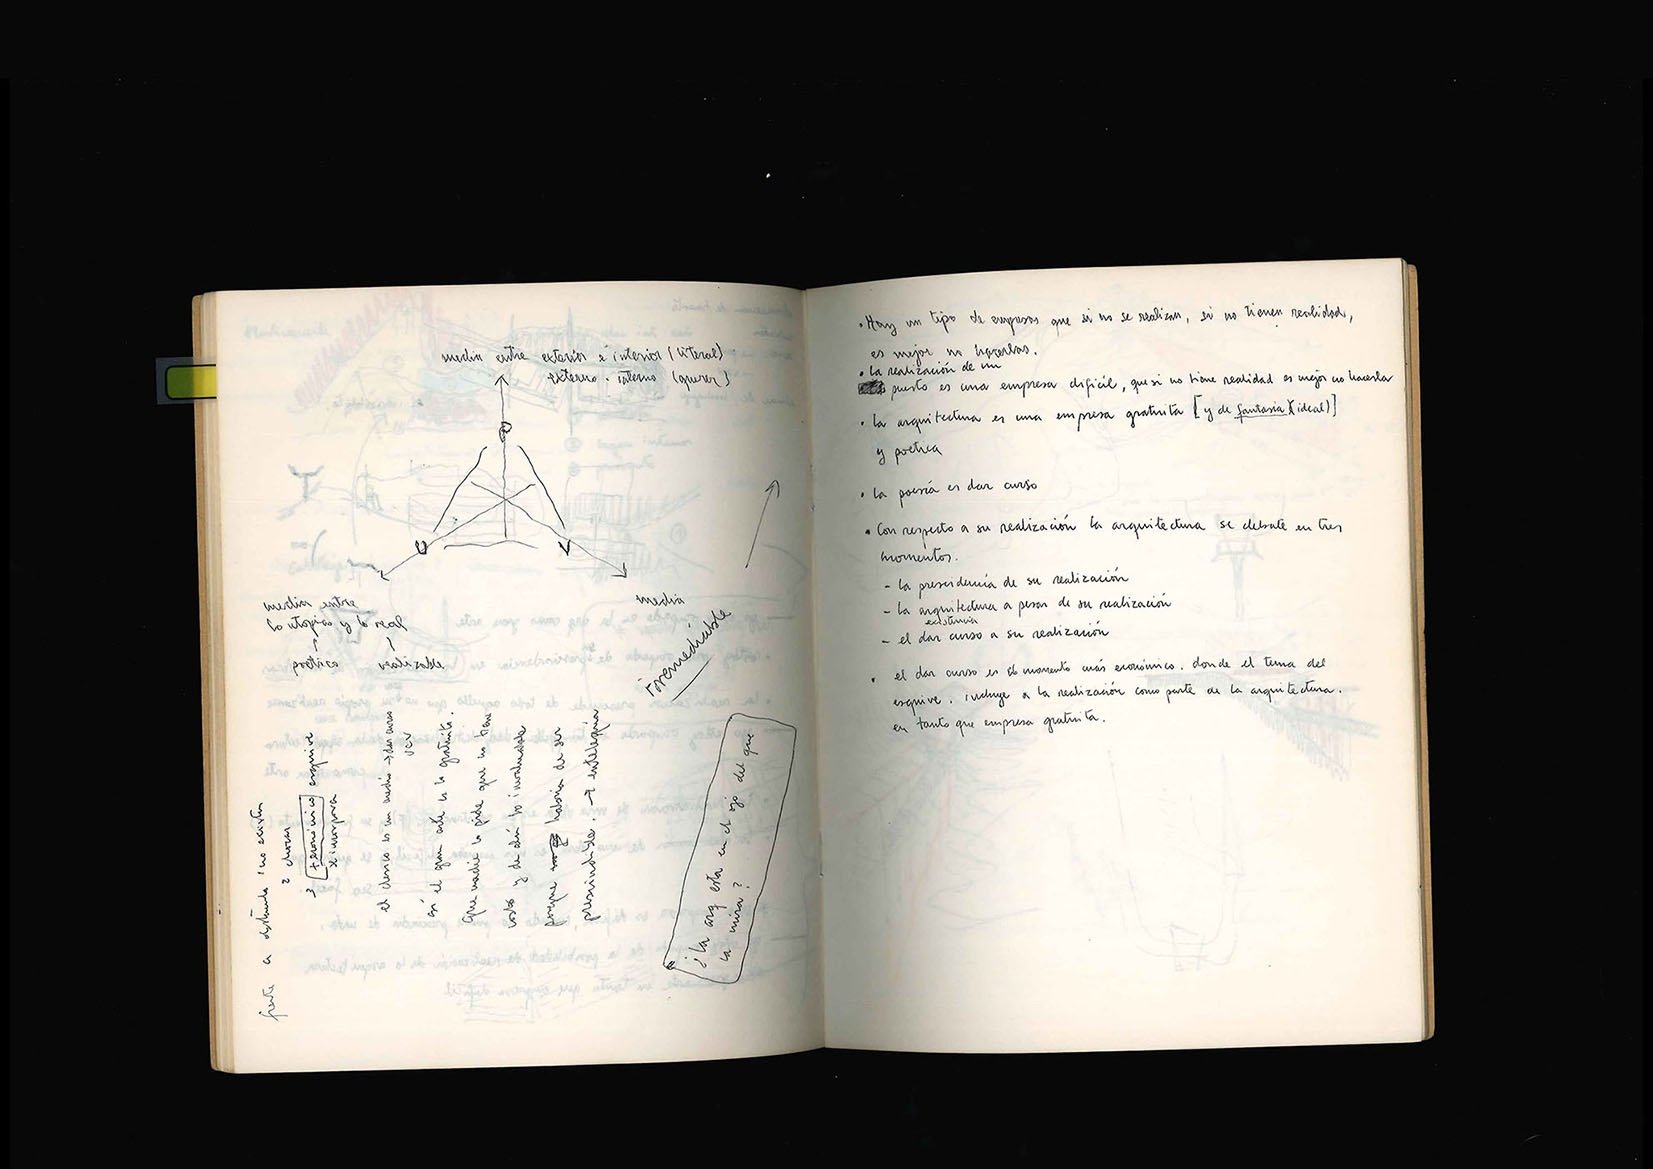 media entre exterior e interior (literal)
externo . interno (querer)
U
V
media entre
lo utópico y lo real
poético realizable
media
irremediable
frente a
2
3 económico esquive
x incorpora
el deseo es un medio → dar curso
ver
así el gran arte es lo gratuito.
que nadie lo pide que no tiene
costo y de ahí lo invaluable
porque habría de ser
prescindible. → entelequia
¿La arq esta en el ojo del que
la mira?
• Hay un tipo de empresas que si no se realizan, si no tienen realidad,
es mejor no hacerlas.
• La realización de un
puesto es una empresa difícil, que si no tiene realidad es mejor no hacerla
• La arquitectura es una empresa gratuita [y de fantasía (ideal)]
y poética
• La poesía es dar curso
• Con respecto a su realización la arquitectura se debate en tres
momentos.
- la presidencia de su realización
- la arquitectura a pesar de su realización
existencia
- el dar curso a su realización
• el dar curso es el momento más económico. donde el tema del
esquive. incluye a la realización como parte de la arquitectura.
en tanto que empresa gratuita.